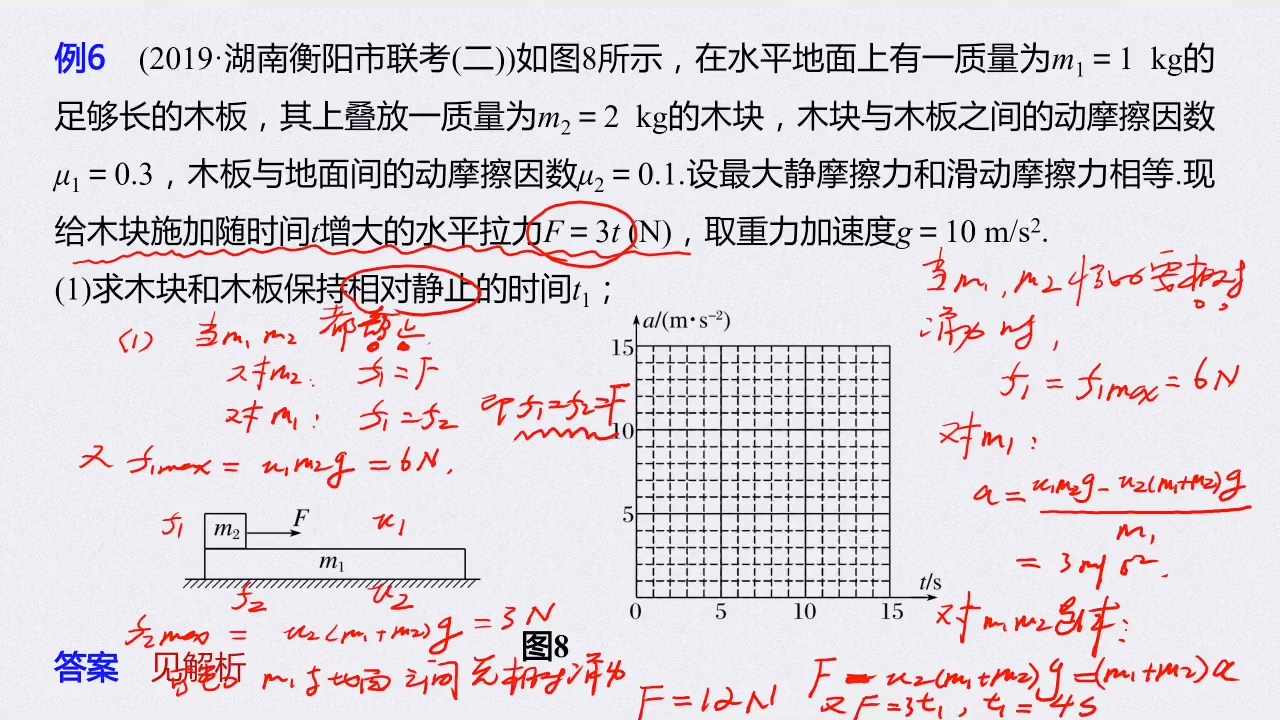 例6 (2019·湖南衡阳市联考(二))如图8所示，在水平地面上有一质量为m₁＝1 kg的
足够长的木板，其上叠放一质量为m₂＝2 kg的木块，木块与木板之间的动摩擦因数
μ₁＝0.3，木板与地面间的动摩擦因数μ₂＝0.1.设最大静摩擦力和滑动摩擦力相等.现
给木块施加随时间t增大的水平拉力F＝3t (N)，取重力加速度g＝10 m/s².
(1)求木块和木板保持相对静止的时间t₁；
(1) 当m₁ m₂ 都静止
对m₂: f₁=F
对m₁: f₁=f₂ 即f₁=f₂=F
又 f₁max = u₁m₂g = 6N.
f₁ m₂ F u₁
m₁
f₂ u₂
f₂max = u₂(m₁+m₂)g = 3N
m₁与地面之间先相对滑动
a/(m·s⁻²)
15
10
5
0 5 10 15 t/s
图8
当m₁, m₂ 将要相对
滑动时,
f₁ = f₁max = 6N
对m₁:
a = u₁m₂g - u₂(m₁+m₂)g
m₁
= 3m/s².
对m₁m₂整体:
F - u₂(m₁+m₂)g = (m₁+m₂)a
F = 12N 又F=3t₁, t₁= 4s
答案 见解析